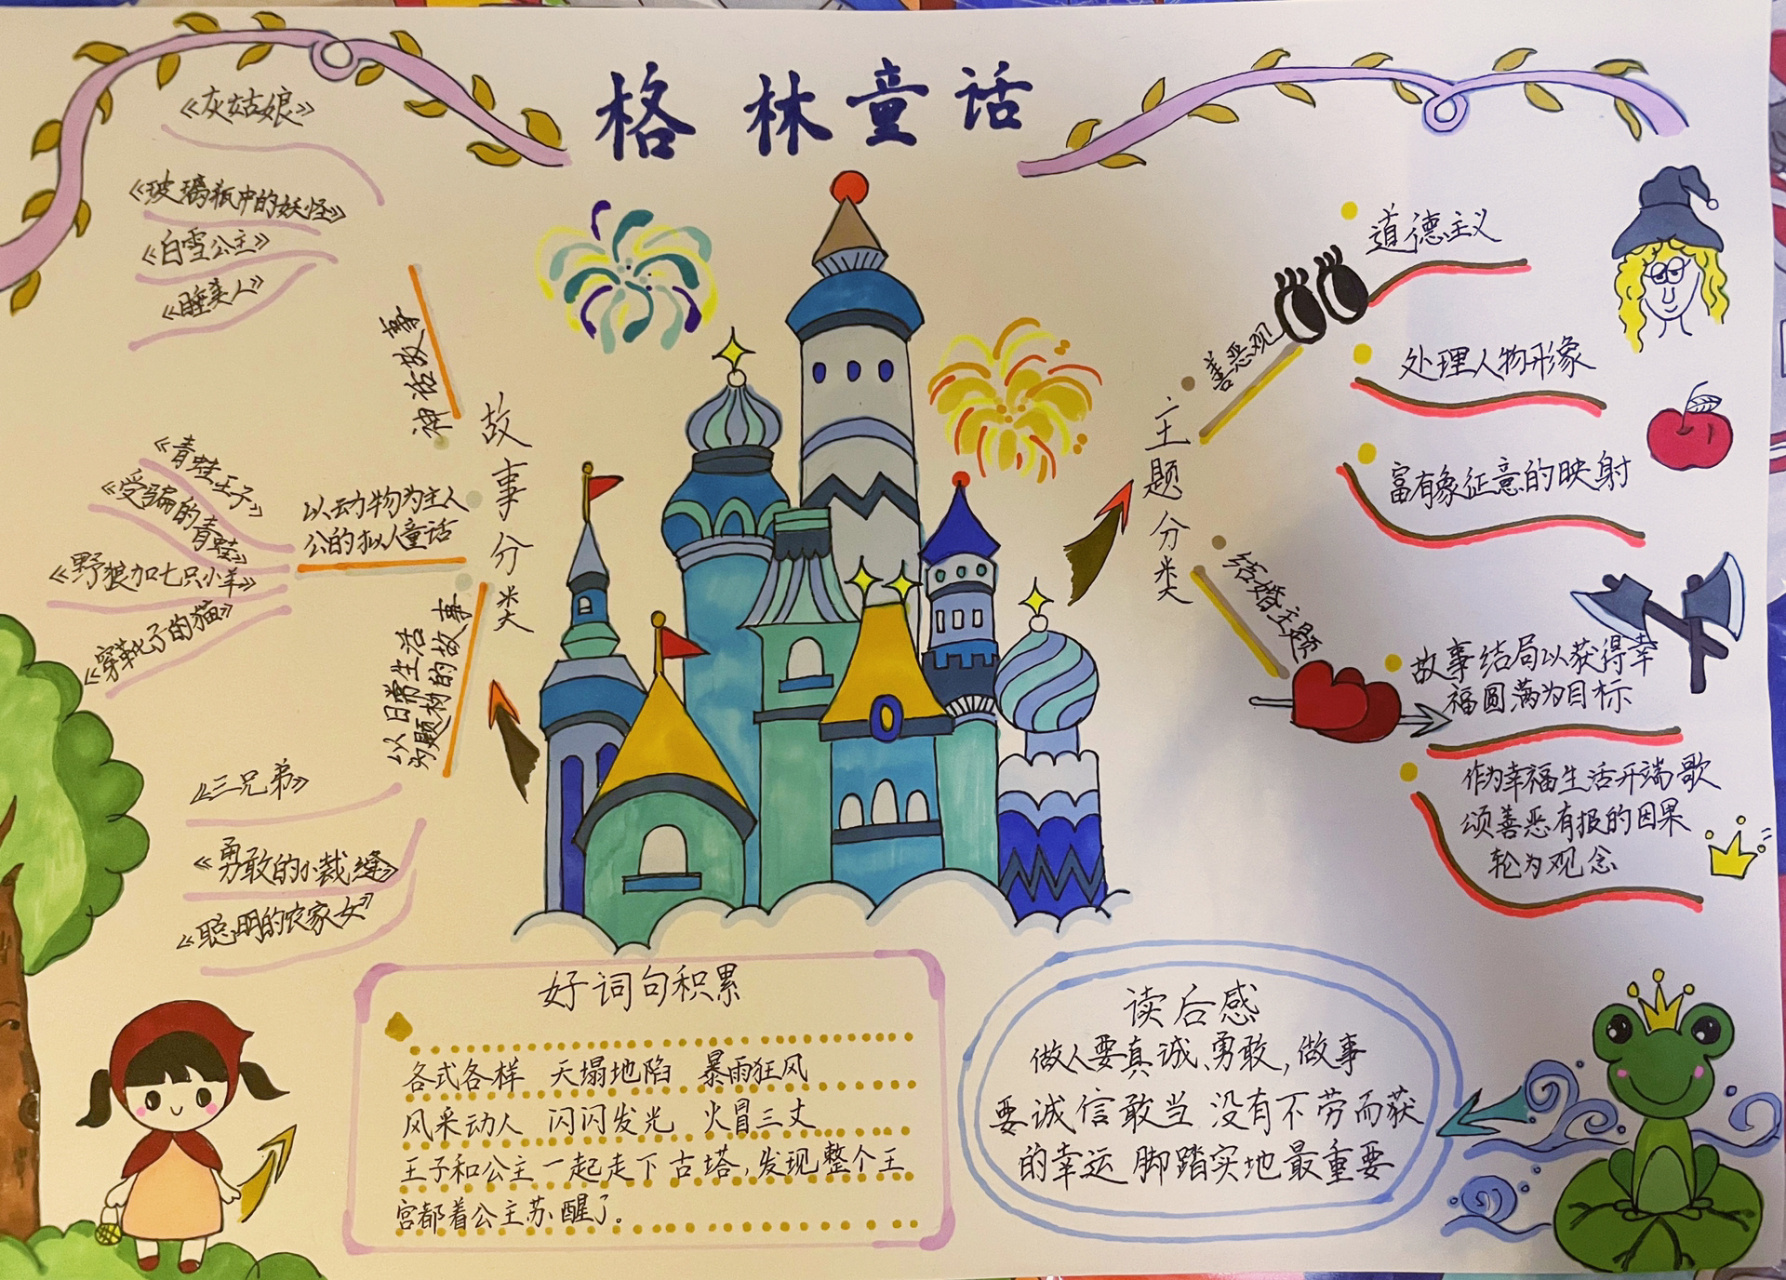 格林童话
《灰姑娘》
《玻璃瓶中的妖怪》
《白雪公主》
《睡美人》
神话故事
故事分类
《青蛙王子》
《受骗的青蛙》
《野狼加七只小羊》
《穿靴子的猫》
以动物为主人
公的拟人童话
以日常生活
为题材的故事
《三兄弟》
《勇敢的小裁缝》
《聪明的农家女》
主题分类
善恶观
道德主义
处理人物形象
富有象征意的映射
结婚主题
故事结局以获得幸
福圆满为目标
作为幸福生活开端歌
颂善恶有报的因果
轮为观念
好词句积累
各式各样 天塌地陷 暴雨狂风
风采动人 闪闪发光 火冒三丈
王子和公主一起走下古塔，发现整个王
宫都着公主苏醒了。
读后感
做人要真诚、勇敢，做事
要诚信敢当 没有不劳而获
的幸运 脚踏实地最重要